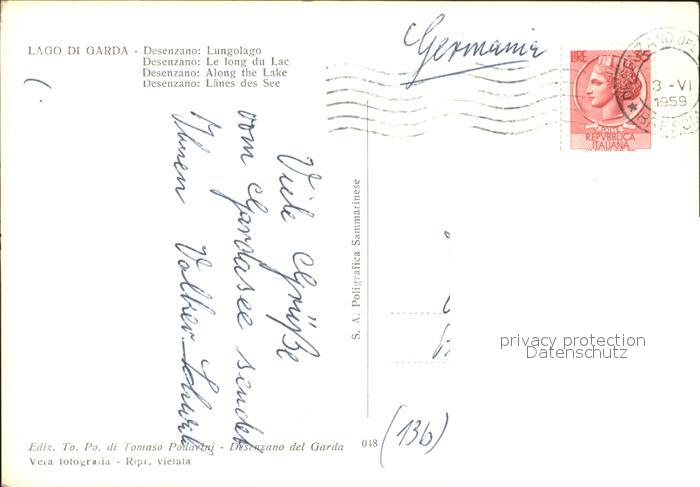 LAGO DI GARDA - Desenzano: Lungolago
Desenzano: Le long du Lac
Desenzano: Along the Lake
Desenzano: Länes des See
Germania
LIRE 35
POSTE
REPVBBLICA
ITALIANA
DESENZANO DEL
3 - VI
1959
Viele Grüße
vom Gardasee sendet
Ihnen Volker
S. A. Poligrafica Sammarinese
privacy protection
Datenschutz
Ediz. To. Po. di Tomaso Podavini - Desenzano del Garda
048
(136)
Vera fotografia - Ripr. vietata